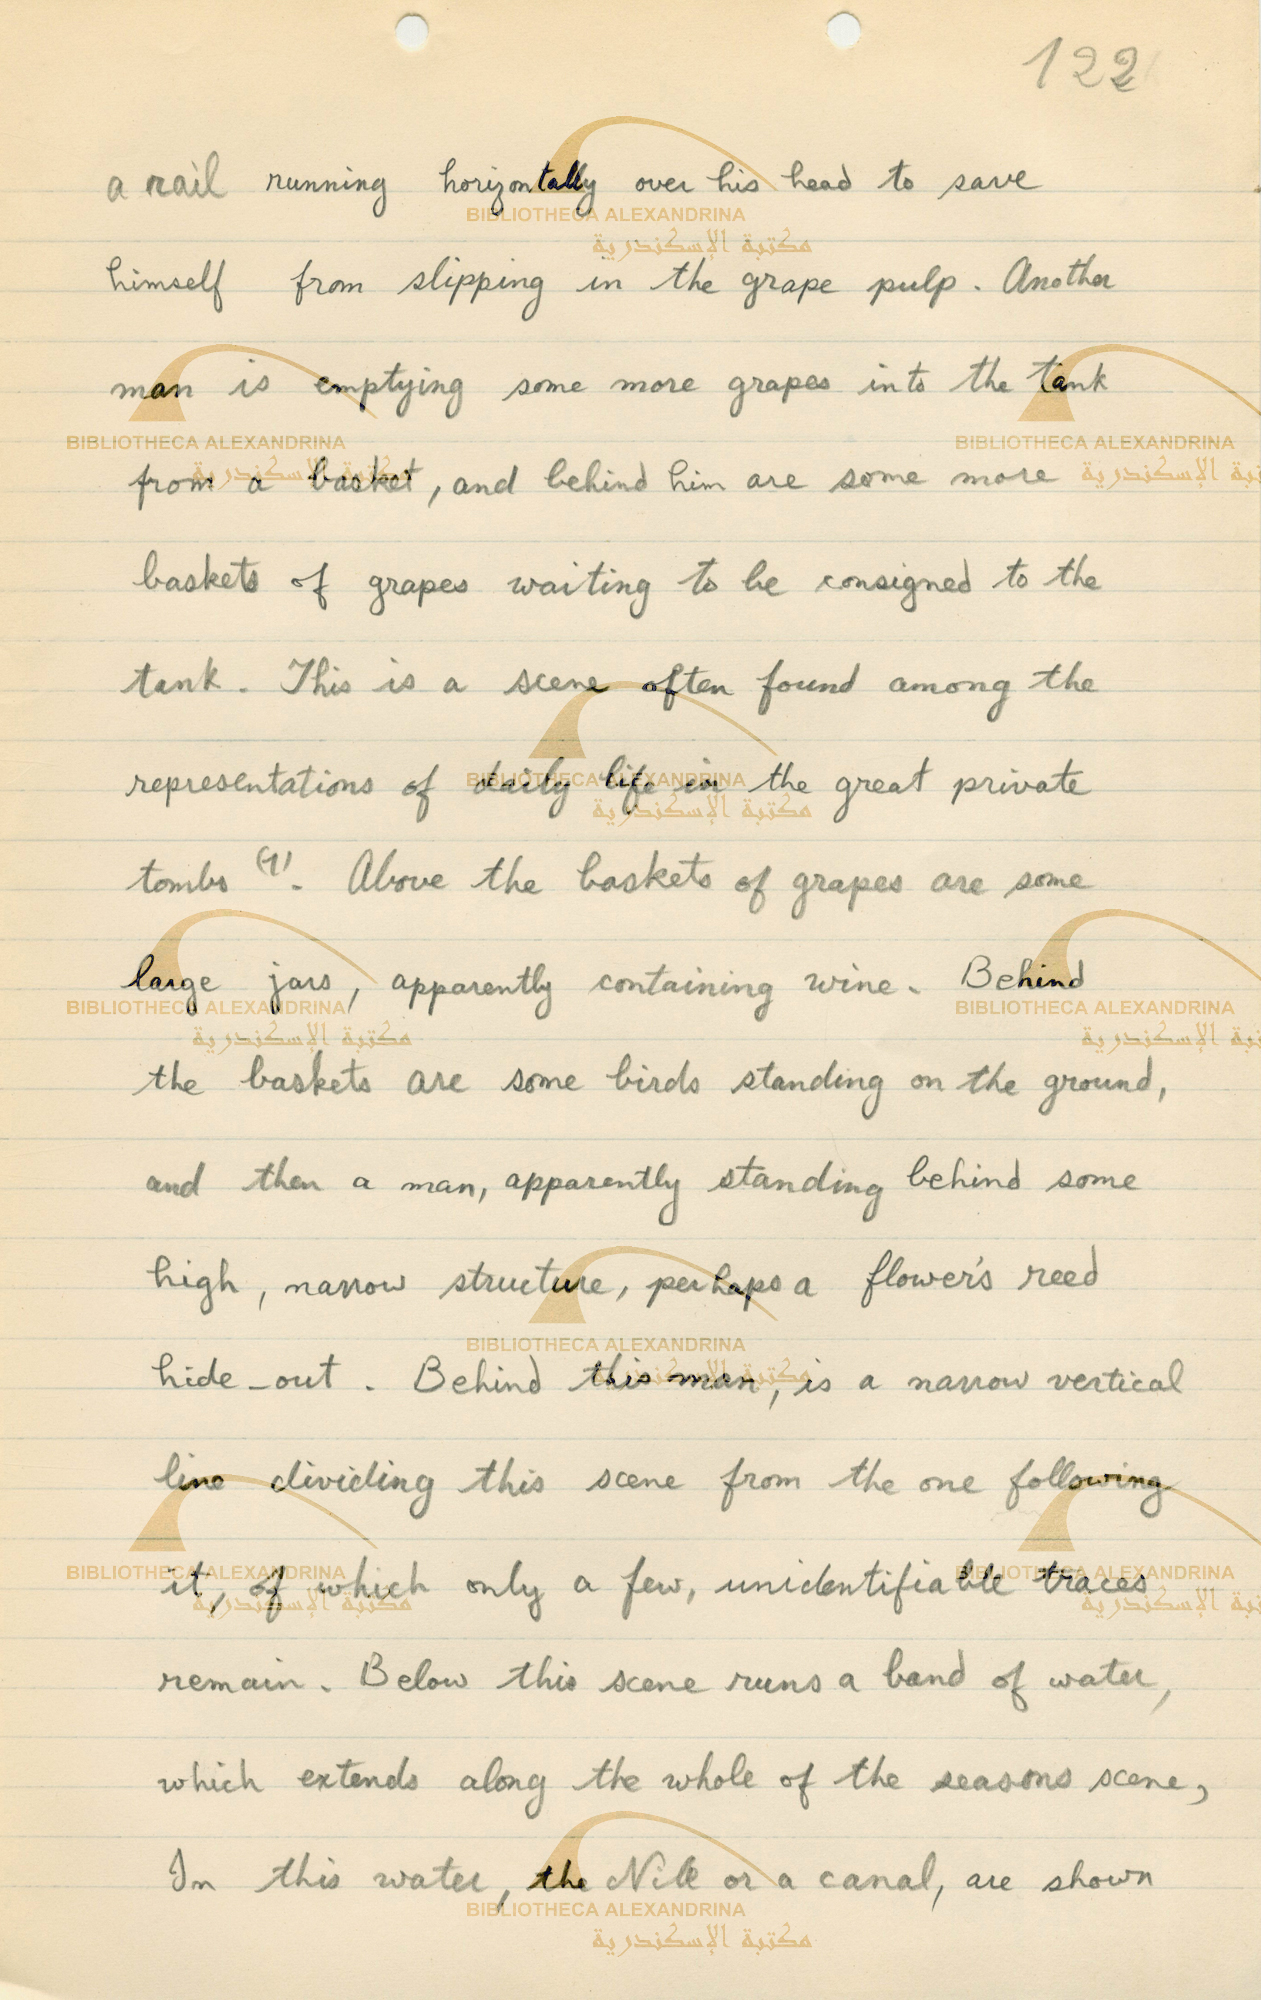 122
a rail running horizontally over his head to save
himself from slipping in the grape pulp. Another
man is emptying some more grapes into the tank
from a basket, and behind him are some more
baskets of grapes waiting to be consigned to the
tank. This is a scene often found among the
representations of daily life in the great private
tombs (1). Above the baskets of grapes are some
large jars, apparently containing wine. Behind
the baskets are some birds standing on the ground,
and then a man, apparently standing behind some
high, narrow structure, perhaps a flower's reed
hide-out. Behind this man, is a narrow vertical
line dividing this scene from the one following
it, of which only a few, unidentifiable traces
remain. Below this scene runs a band of water,
which extends along the whole of the seasons scene,
In this water, the Nile or a canal, are shown
BIBLIOTHECA ALEXANDRINA
مكتبة الإسكندرية